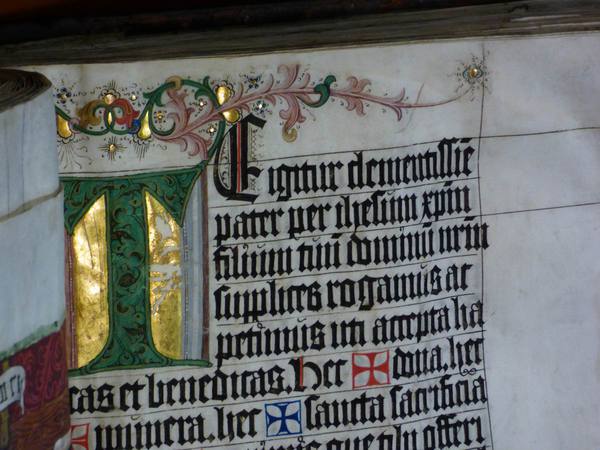 TE igitur clementissīē
pater per ihesum xp̄m
filium tuū dominū nr̄m
supplices rogamus ac
petimus uti accepta ha
cas et benedicas. hec ✠ dona. hec
✠ munera. hec ✠ sancta sacrificia
que tibi offeri